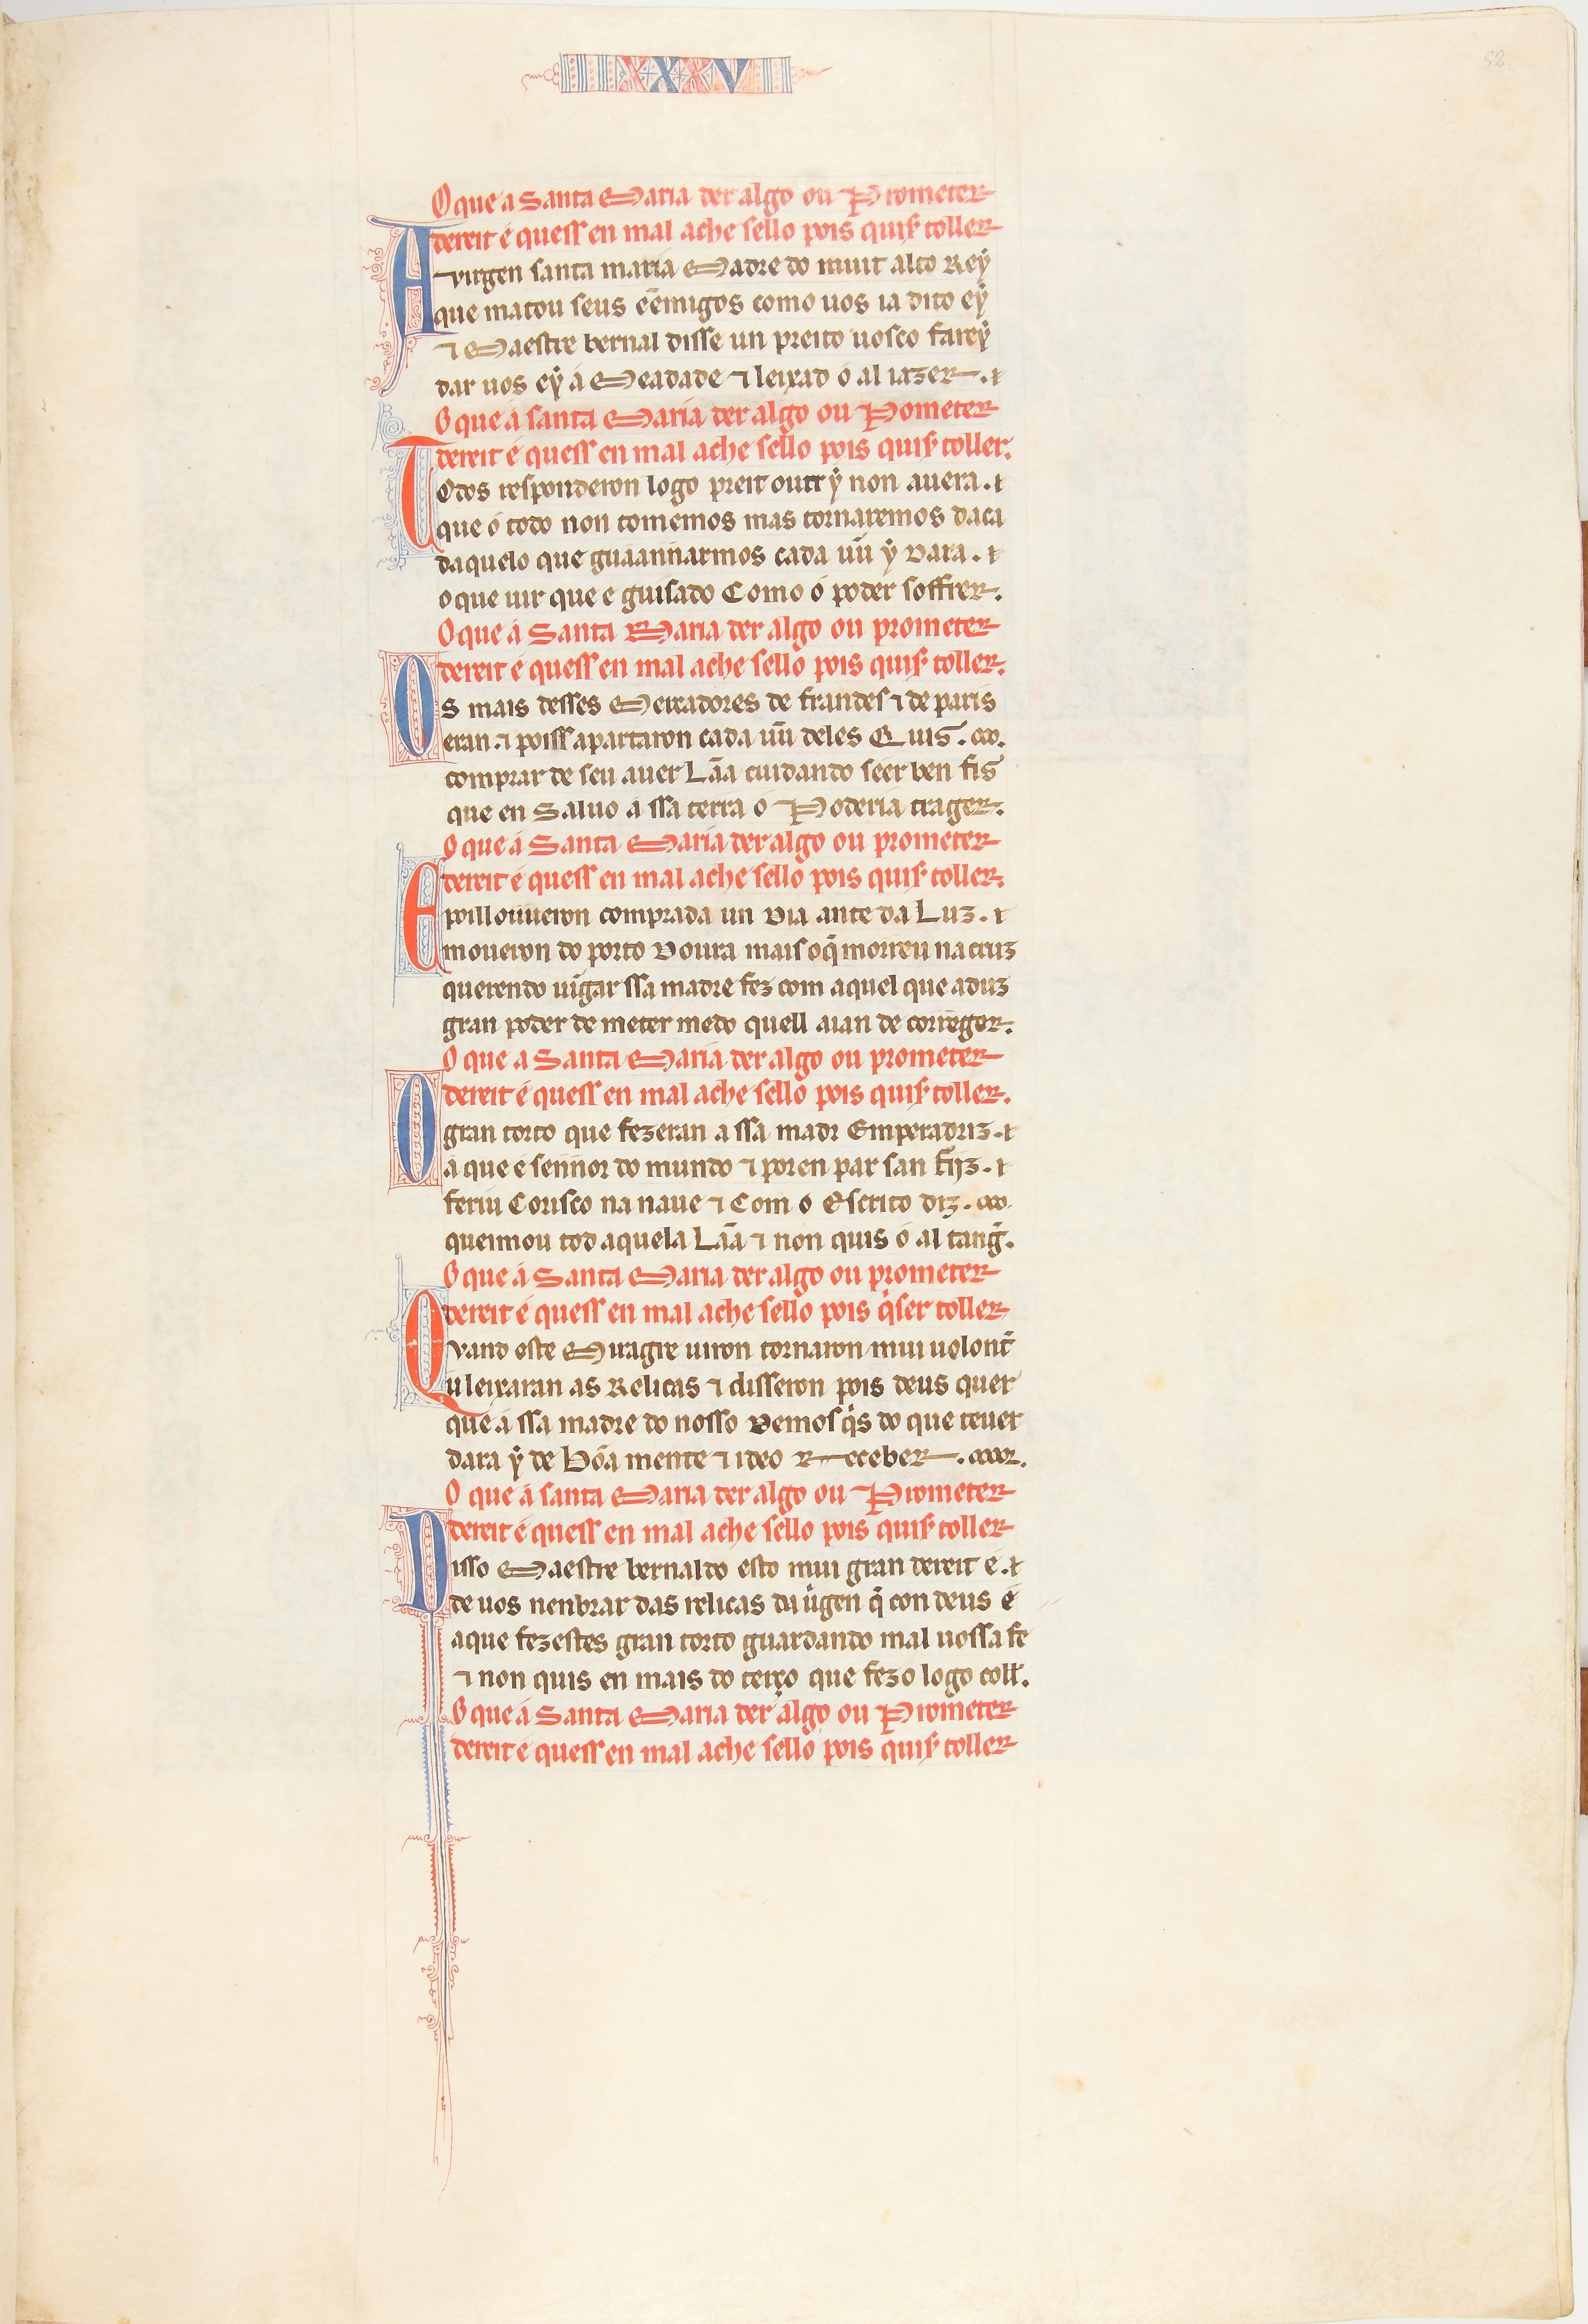 XXXV
52
O que a Santa Maria der algo ou Prometer
dereit é quess en mal ache sello pois quiser toller
A virgen santa maria Madre do muit alto Rey
que matou seus eẽmigos como uos ia dito eẏ
⁊ Maestre bernal disse un preito uosco farey
dar uos eẏ á Meadade ⁊ leixad ó al iazer.
O que á santa Maria der algo ou Pometer
dereit é quess en mal ache sello pois quiser toller.
Todos responderon logo preit outr ẏ non auera.
que ó todo non tomemos mas tornaremos daca
daquelo que guaannarmos cada uũ ẏ dara.
o que uir que e guisado Como ó poder soffrer.
O que á Santa Maria der algo ou prometer
dereit é quess en mal ache sello pois quiser toller.
Os mais desses Mercadores de frandes ⁊ de paris
eran. ⁊ poiss apartaron cada uũ deles Quis.
comprar de seu auer Lãa cuidando seer ben fis
que en Saluo a ssa terra ó Poderia trager.
O que á Santa Maria der algo ou prometer
dereit é quess en mal ache sello pois quiser toller.
E poill ouueron comprada un dia ante da Luz.
moueron do porto Doura mais o q̃ morreu na cruz
querendo uĩgar ssa madre fez com aquel que aduz
gran poder de meter medo quell aian de correger.
O que a Santa Maria der algo ou prometer
dereit é quess en mal ache sello pois quiser toller.
O gran torto que fezeran a ssa madr Emperadriz.
á que e sennor do mundo ⁊ por en par san fijz.
feriu Corisco na naue ⁊ Com o Escrito diz.
queimou tod aquela Lãa ⁊ non quis ó al tanger.
O que á Santa Maria der algo ou prometer
dereit é quess en mal ache sello pois qiser toller
Quand este Miragre uiron tornaron mui uolonter
u leixaran as Relicas ⁊ disseron pois deus quer
que á ssa madre do nosso Demos q̇s do que teuer
dara ẏ de bõa mente ⁊ ideo Receber.
O que á santa Maria der algo ou Prometer
dereit é quess en mal ache sello pois quiser toller
Disso Maestre bernaldo esto mui gran dereit é.
de uos nenbrar das relicas da uirgen q̃ con deus é
a que fezestes gran torto guardando mal uossa fe
⁊ non quis en mais do terço que fezo logo coller.
O que á Santa Maria der algo ou Prometer
dereit é quess en mal ache sello pois quiser toller